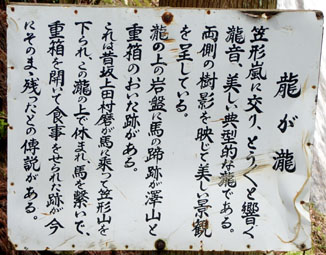 龍が瀧
笠形嵐に交り、とうくと響く
瀧音、美しい典型的な瀧である。
両側の樹影を映じて美しい景観
を呈している。
瀧の上の岩盤に馬の蹄跡が澤山と
重箱のおいた跡がある。
これは昔坂上田村磨が馬に乗って笠形山を
下られ、この瀧の上で休まれ、馬を繋いで、
重箱を開いて食事をせられた跡が今
にそのまゝ残ったとの傳説がある。